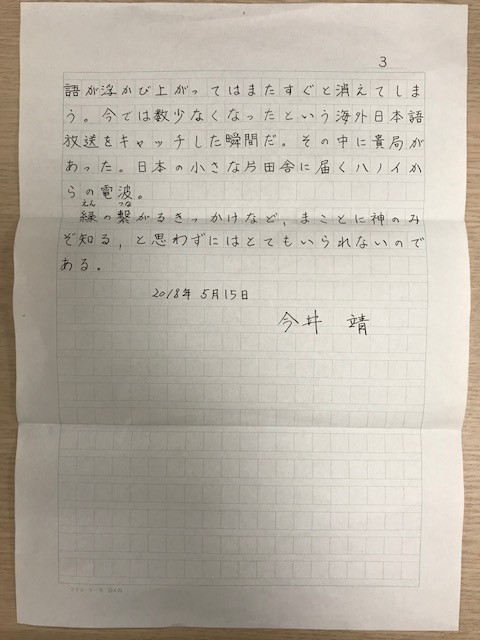 3
語が浮かび上がってはまたすぐと消えてしま
う。今では数少なくなったという海外日本語
放送をキャッチした瞬間だ。その中に貴局が
あった。日本の小さな片田舎に届くハノイか
らの電波。
えん つな
縁の繋がるきっかけなど、まことに神のみ
ぞ知る、と思わずにはとてもいられないので
ある。
2018年5月15日
今井 靖